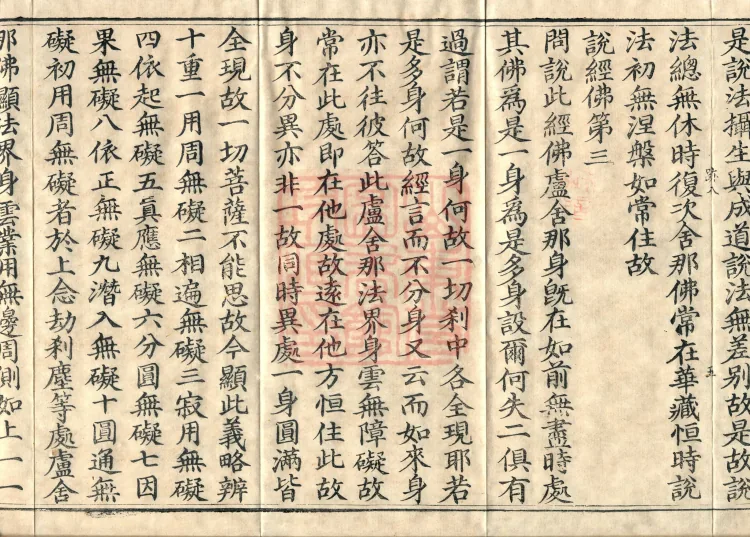 是說法攝生與成道說法無差别故是故說
法總無休時復次舍那佛常在華藏恒時說
法初無涅槃如常住故
說經佛第三
問說此經佛盧舍那身旣在如前無盡時處
其佛爲是一身爲是多身設爾何失二俱有
過謂若是一身何故一切刹中各全現耶若
是多身何故經言而不分身又云而如來身
亦不往彼答此盧舍那法界身雲無障礙故
常在此處即在他處故遠在他方恒住此故
身不分異亦非一故同時異處一身圓滿皆
全現故一切菩薩不能思故今顯此義略辨
十重一用周無礙二相遍無礙三寂用無礙
四依起無礙五眞應無礙六分圓無礙七因
果無礙八依正無礙九潛入無礙十圓通無
礙初用周無礙者於上念劫刹塵等處盧舍
那佛顯法界身雲業用無邊周側如上一一